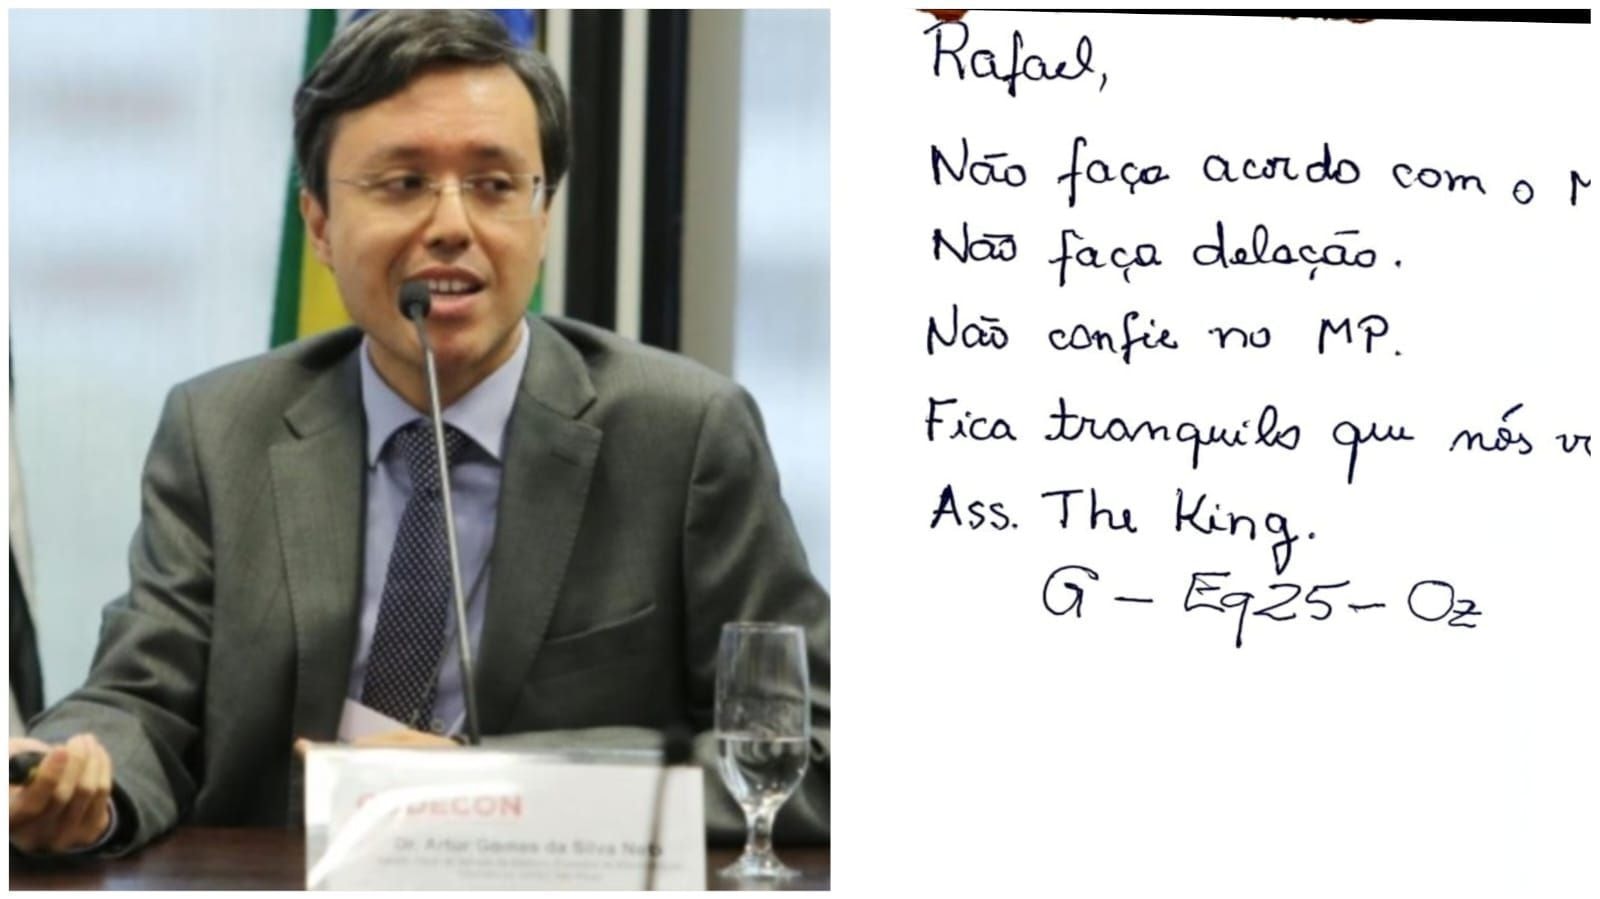 CODECON
Dr. Artur Gomes da Silva Neto
Rafael,
Não faça acordo com o M
Não faça delação.
Não confie no MP.
Fica tranquilo que nós va
Ass. The King.
G - Eq25 - Oz